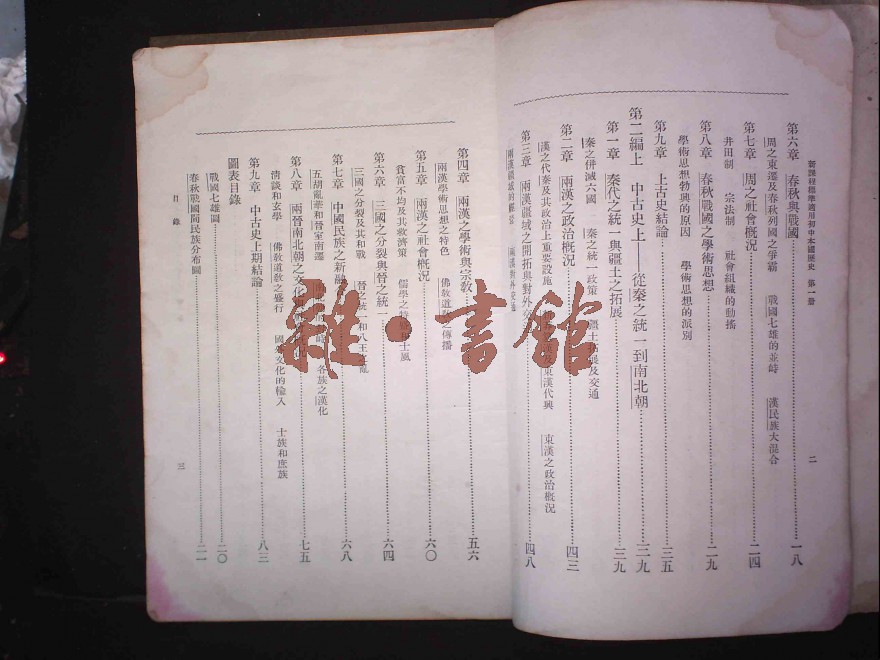 新課程標準適用初中本國歷史 第一冊
二
第六章 春秋與戰國 一八
周之東遷及春秋列國之爭霸 戰國七雄的並峙 漢民族大混合
第七章 周之社會概況 二四
井田制 宗法制 社會組織的動搖
第八章 春秋戰國之學術思想 二九
學術思想勃興的原因 學術思想的派別
第九章 上古史結論 三五
第二編上 中古史上——從秦之統一到南北朝 三九
第一章 秦代之統一與疆土之拓展 三九
秦之併滅六國 秦之統一政策 疆土拓展及交通
第二章 兩漢之政治概況 四三
漢之代秦及其政治上重要設施 及東漢代興 東漢之政治概況
第三章 兩漢疆域之開拓與對外交 四八
第四章 兩漢之學術與宗教 五六
兩漢學術思想之特色 佛教道教之傳播
第五章 兩漢之社會概況 六〇
貧富不均及其救濟策 儒學之特 士風
第六章 三國之分裂與晉之統一 六四
三國之分裂及其和戰 晉之統一和八王之亂
第七章 中國民族之新融 六八
五胡亂華和晉室南遷 名族之漢化
第八章 兩晉南北朝之文化 七五
清談和玄學 佛教道教之盛行 國外文化的輸入 士族和庶族
第九章 中古史上期結論 八三
圖表目錄
戰國七雄圖 二〇
春秋戰國間民族分布圖 二一
目錄
三
雜·書館